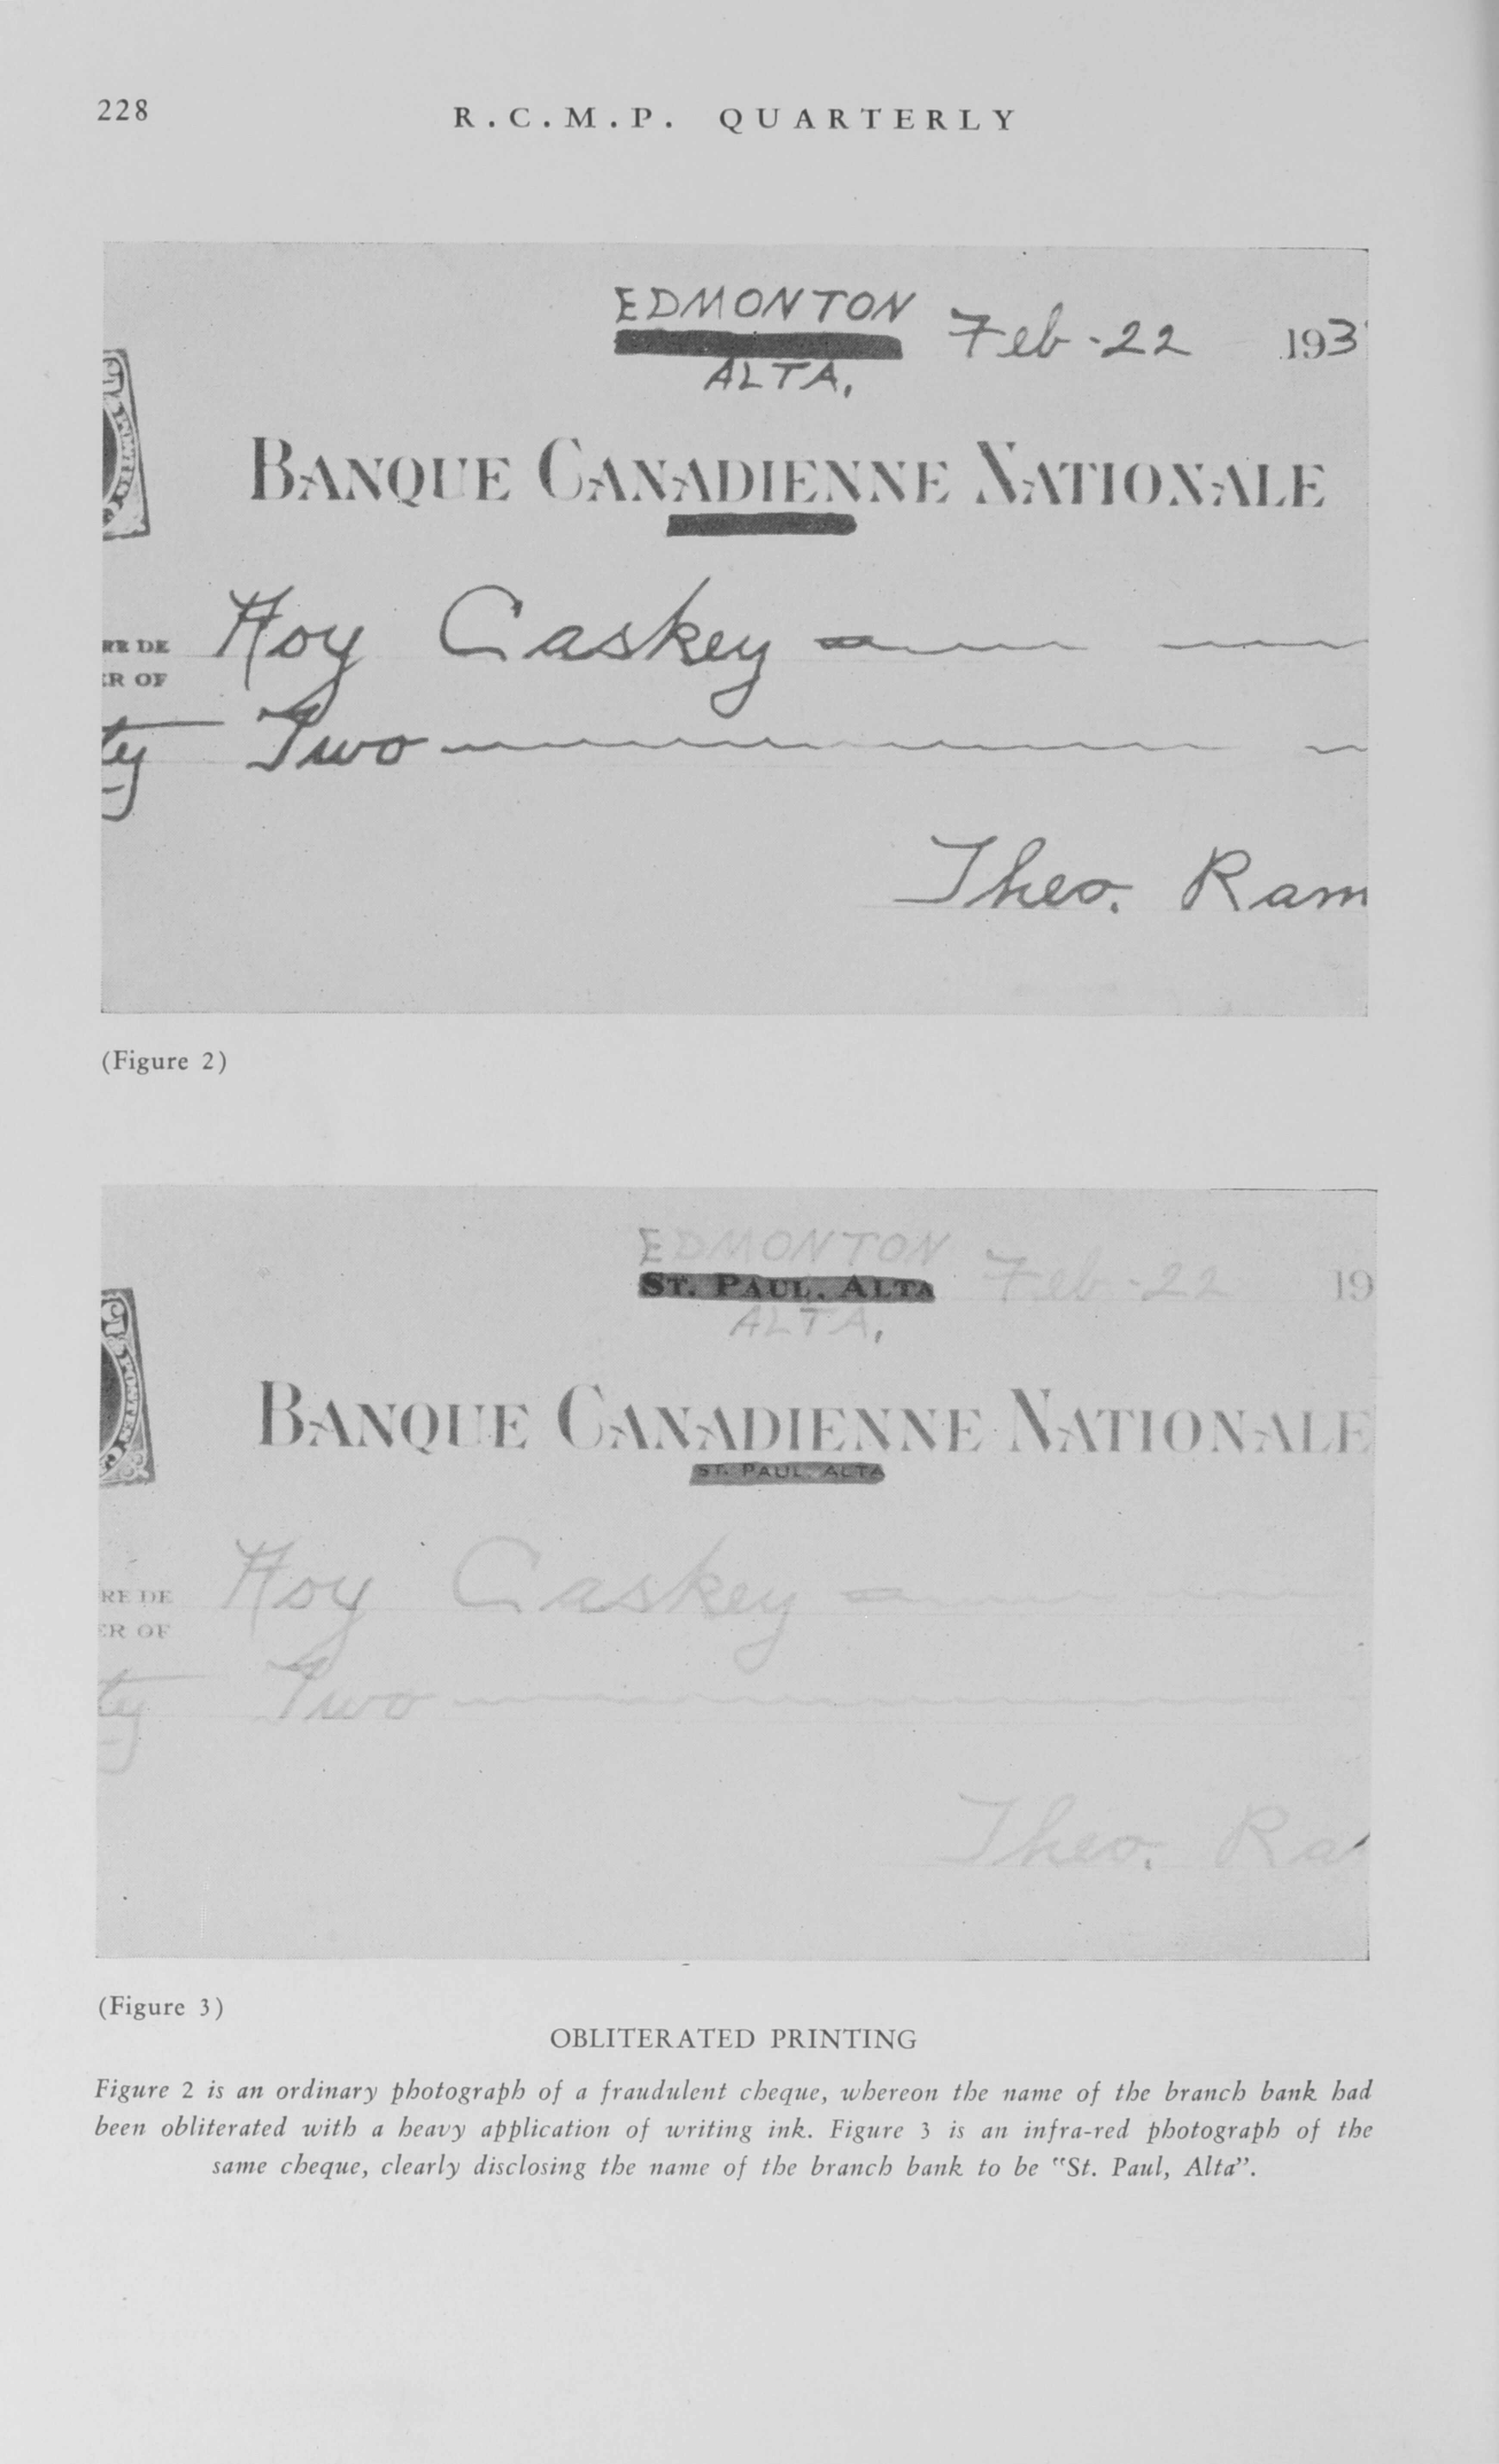 228
R.C.M.P. QUARTERLY
EDMONTON
Feb-22 193
ALTA.
BANQUE CANADIENNE NATIONALE
RE DE
Roy Caskey
ER OF
ty Two
Theo. Ram
(Figure 2)
EDMONTON
ST. PAUL, ALTA
Feb-22 19
ALTA.
BANQUE CANADIENNE NATIONALE
ST. PAUL, ALTA
RE DE
Roy Caskey
ER OF
ty Two
Theo. Ra
(Figure 3)
OBLITERATED PRINTING
Figure 2 is an ordinary photograph of a fraudulent cheque, whereon the name of the branch bank had
been obliterated with a heavy application of writing ink. Figure 3 is an infra-red photograph of the
same cheque, clearly disclosing the name of the branch bank to be "St. Paul, Alta".